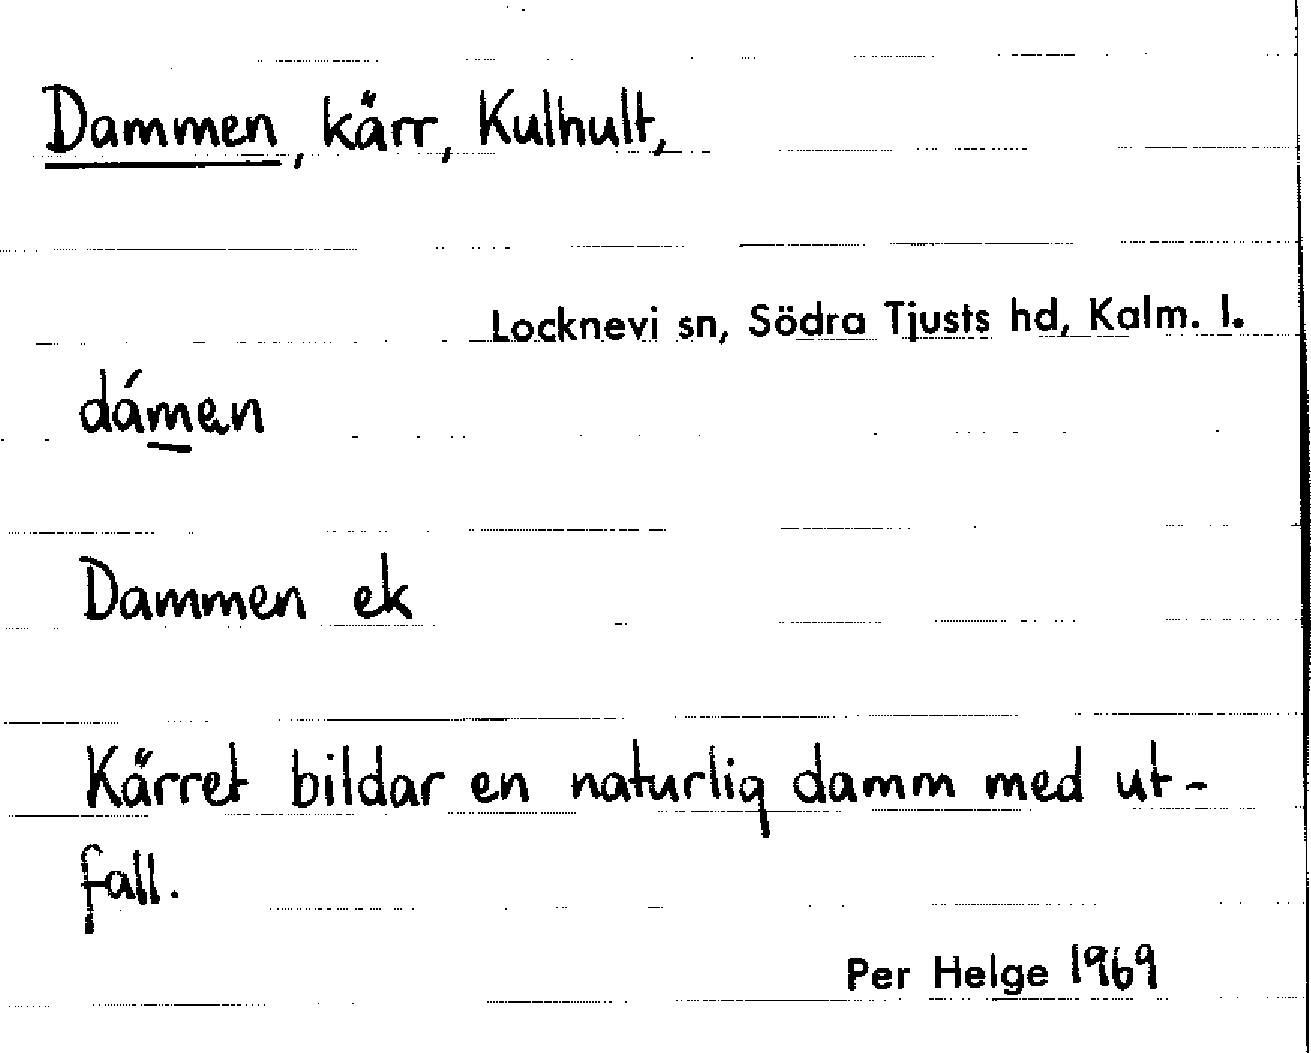 Dammen, kärr, Kulhult,
Locknevi sn, Södra Tjusts hd, Kalm. l.
dámen
Dammen ek
Kärret bildar en naturlig damm med ut-
fall.
Per Helge 1969